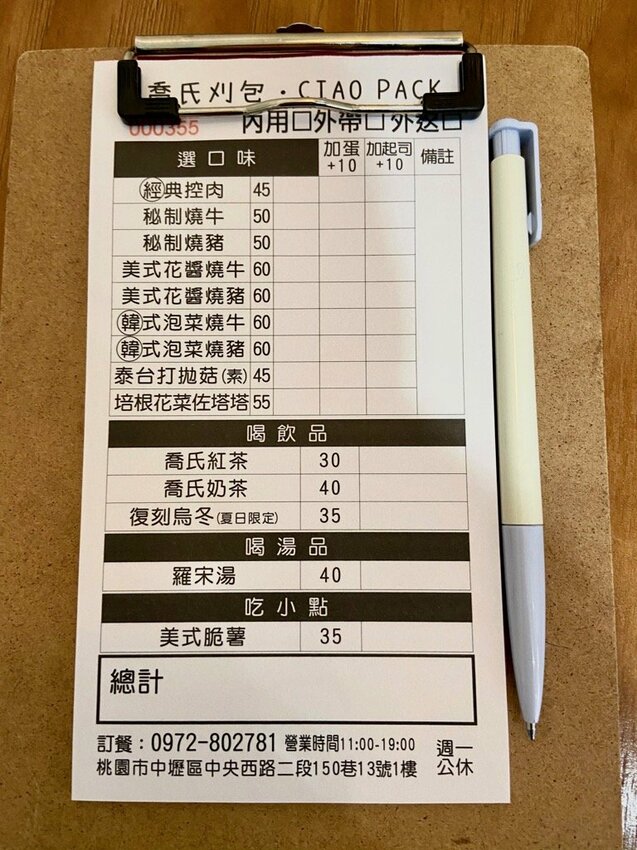 喬氏刈包・CIAO PACK
000355 內用□外帶□外送□
選口味 加蛋+10 加起司+10 備註
經典控肉 45
秘制燒牛 50
秘制燒豬 50
美式花醬燒牛 60
美式花醬燒豬 60
韓式泡菜燒牛 60
韓式泡菜燒豬 60
泰台打拋菇(素) 45
培根花菜佐塔塔 55
喝飲品
喬氏紅茶 30
喬氏奶茶 40
復刻烏冬(夏日限定) 35
喝湯品
羅宋湯 40
吃小點
美式脆薯 35
總計
訂餐：0972-802781 營業時間11:00-19:00 週一
桃園市中壢區中央西路二段150巷13號1樓 公休